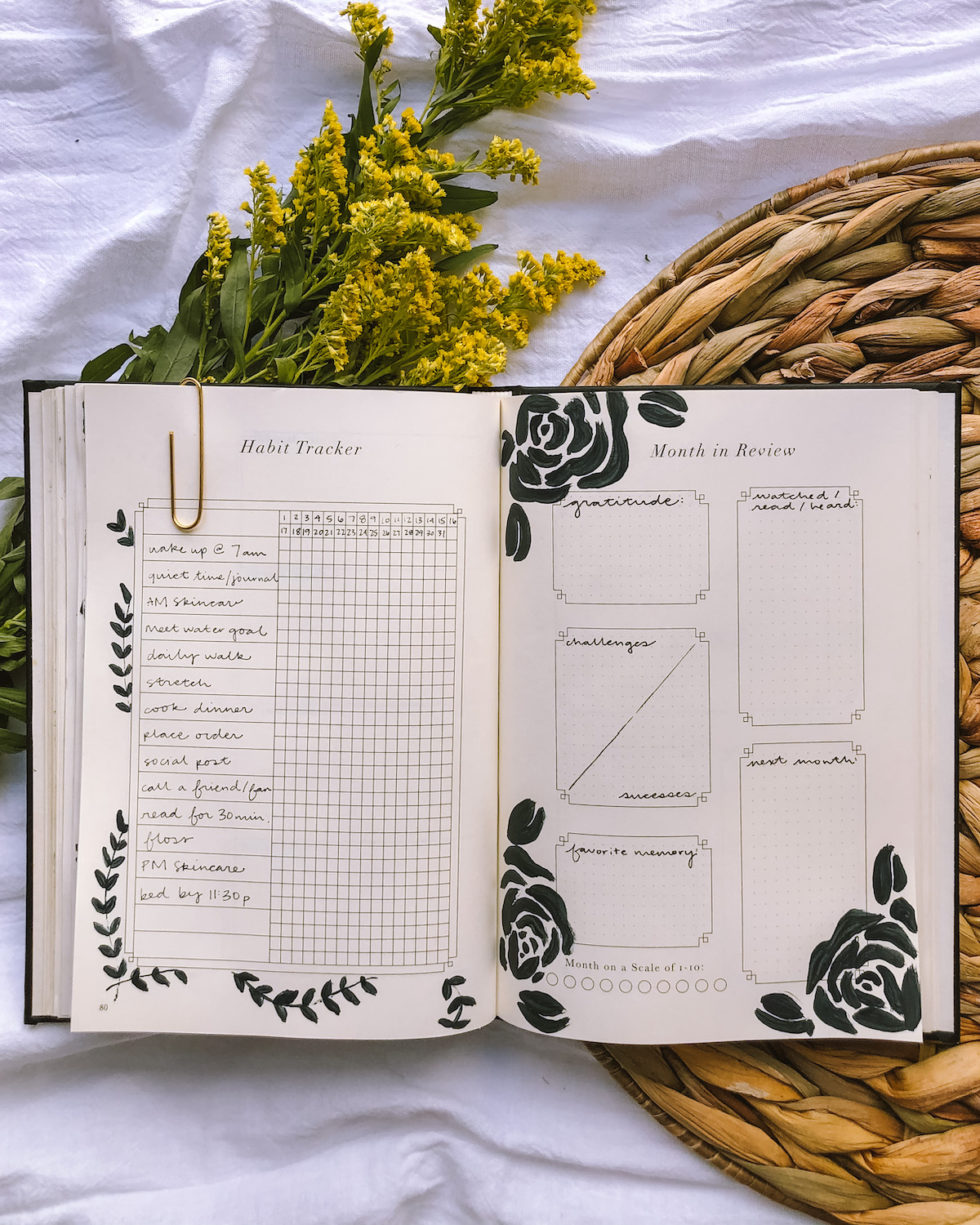 Habit Tracker
1 2 3 4 5 6 7 8 9 10 11 12 13 14 15 16
17 18 19 20 21 22 23 24 25 26 27 28 29 30 31
wake up @ 7am
quiet time/journal
AM skincare
meet water goal
daily walk
stretch
cook dinner
place order
social post
call a friend/fam
read for 30min.
floss
PM skincare
bed by 11:30p
80
Month in Review
gratitude:
challenges
successes
favorite memory:
Month on a Scale of 1-10:
watched/
read/heard:
next month: